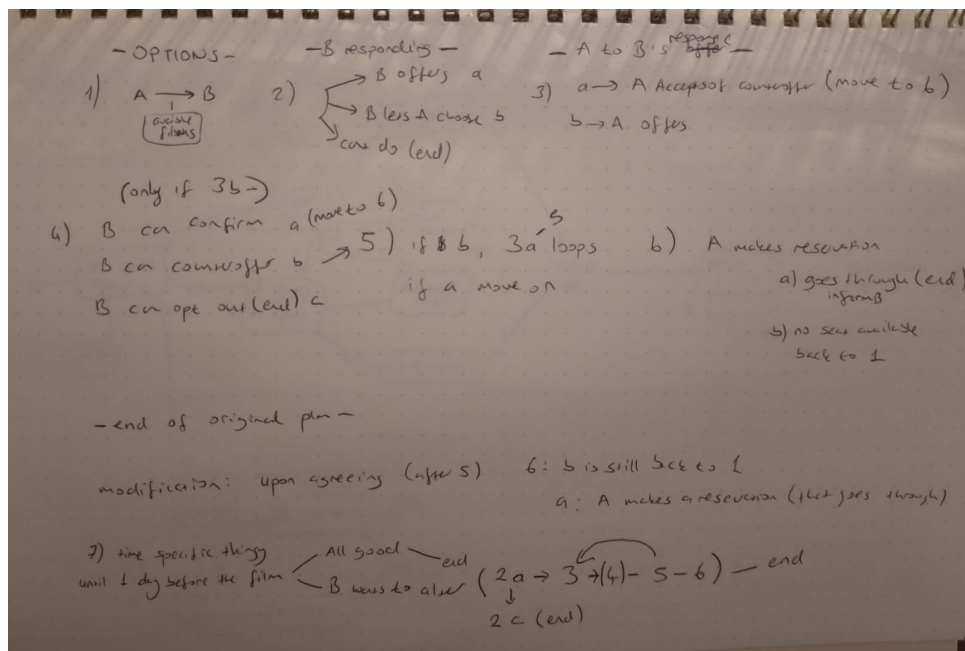 - OPTIONS -
1) A → B
available
films
- B responding -
2) B offers a
B lets A choose b
can't do (end)
- A to B's response -
3) a → A Accepts of counteroffer (move to 6)
b → A offers
(only if 3b -)
4) B can confirm a (move to 6)
B can counteroffer b
B can opt out (end) c
5) if b, 3a loops
5
if a move on
6) A makes reservation
a) goes through (end)
inform B
b) no seat available
back to 1
- end of original plan -
modification: upon agreeing (after 5)
6: b is still back to 1
a: A makes a reservation (that goes through)
7) time specific thingy
until 1 day before the film
All good - end
B wants to alter (2a → 3 → (4) - 5 - 6) - end
2c (end)